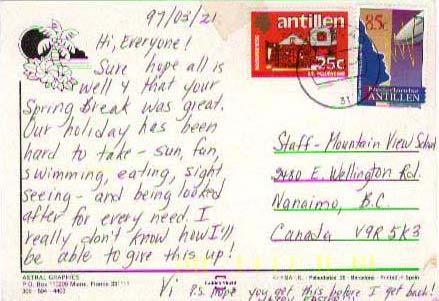 97/03/21
Hi, Everyone!
Sure hope all is
well & that your
Spring Break was great.
Our holiday has been
hard to take - sun, fun,
swimming, eating, sight
seeing - and being looked
after for every need. I
really don't know how I'll
be able to give this up!
Vi
P.S. Hope you get this before I get back!
antillen
25c
85c
Nederlandse
ANTILLEN
31
Staff - Mountain View School
2480 E. Wellington Rd.
Nanaimo, B.C.
Canada V9R 5K3
ASTRAL GRAPHICS
P.O. Box
Miami, Florida
Barcelona
Printed in Spain